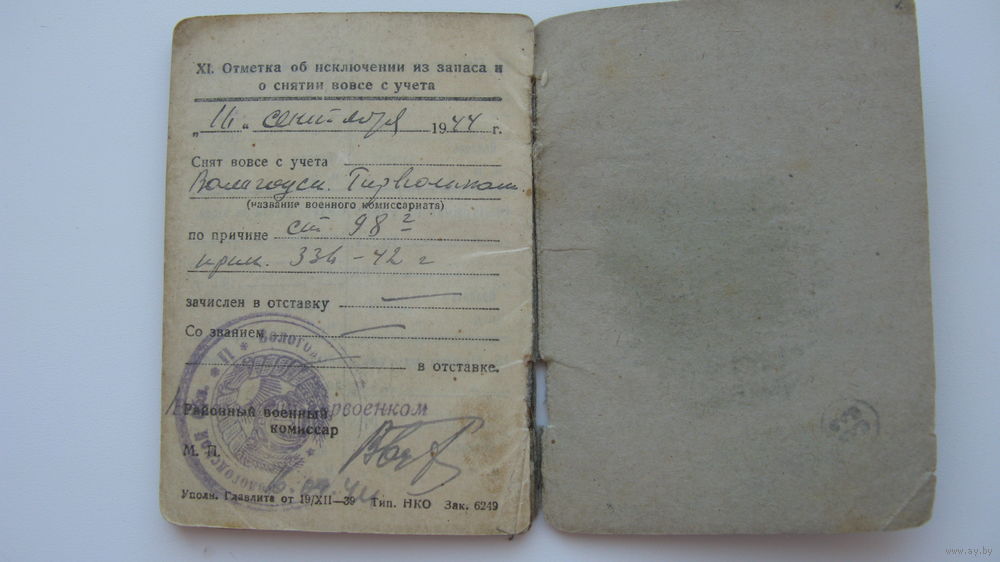 XI. Отметка об исключении из запаса и
о снятии вовсе с учета
„11“ сентября 1944 г.
Снят вовсе с учета
(название военного комиссариата)
по причине ст 98 г
прик. 336-42 г
зачислен в отставку —
Со званием —
в отставке.
Районный военный
комиссар
М. П.
Уполн. Главлита от 19/XII—39 Тип. НКО Зак. 6249
www.ay.by